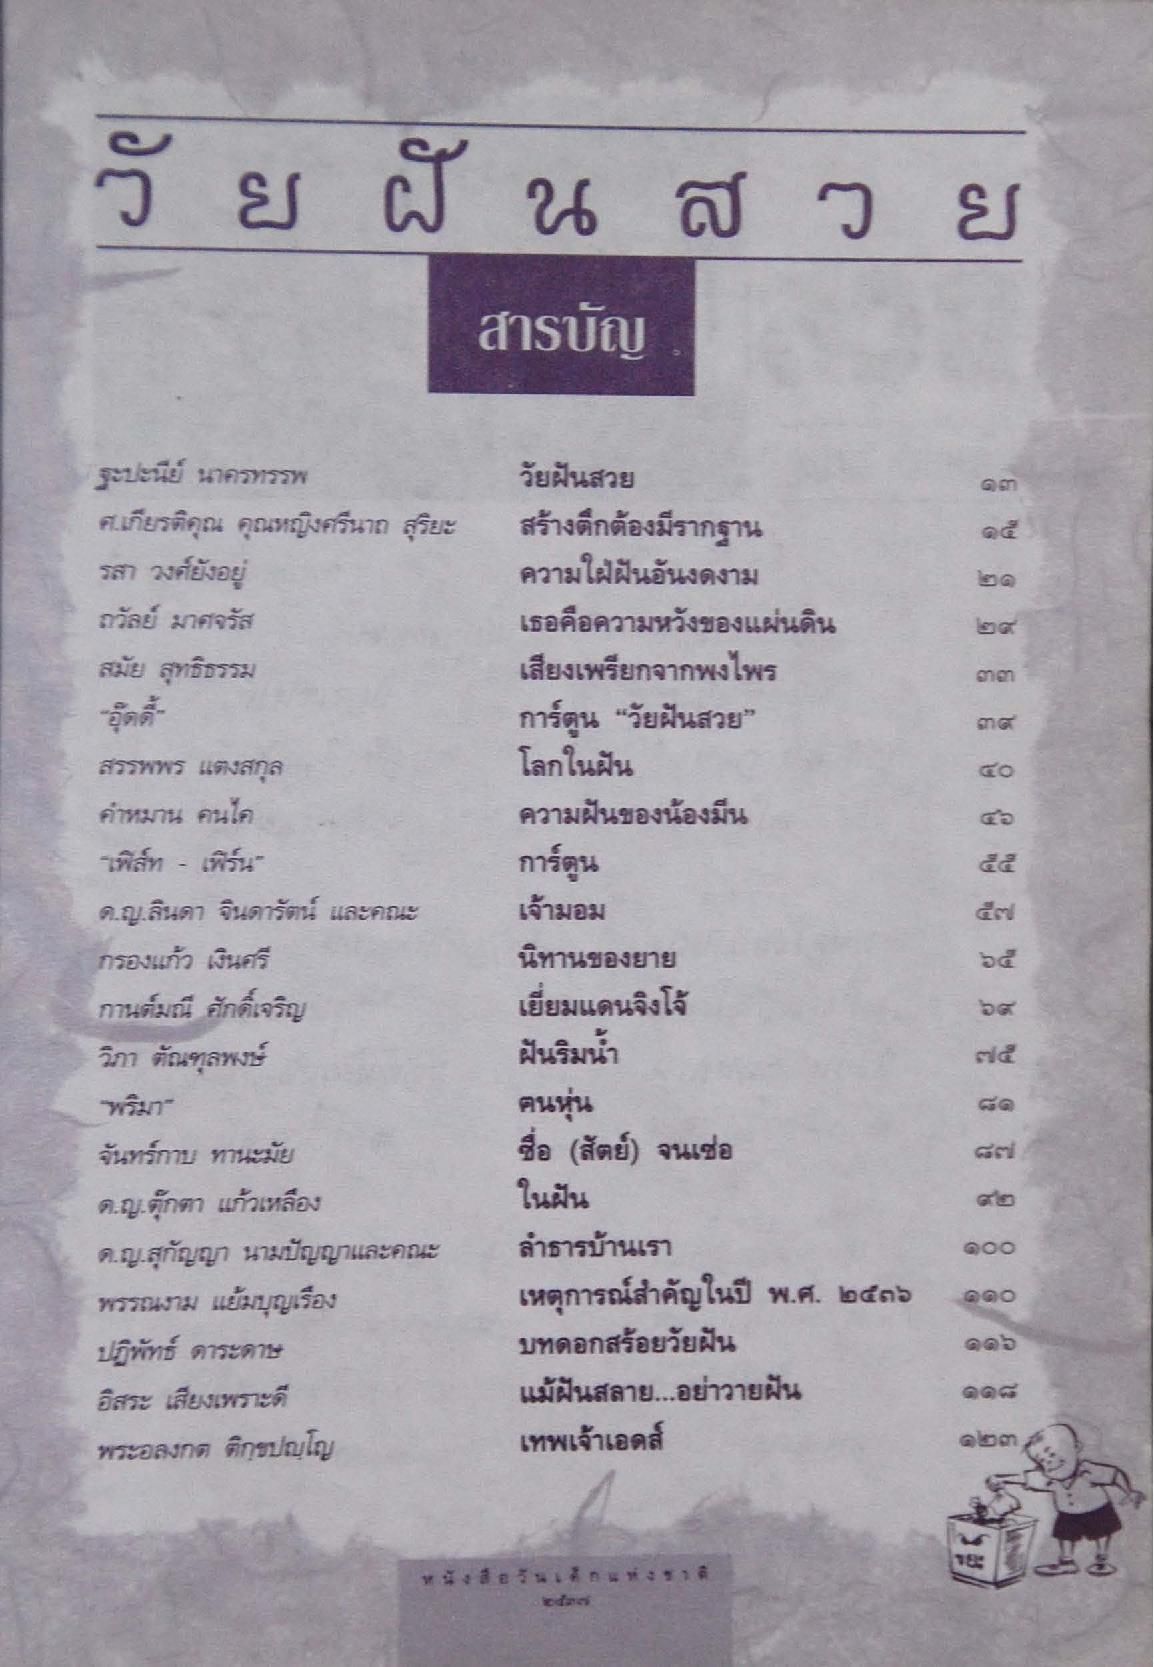 วัยฝันสวย
สารบัญ
ฐะปะนีย์ นาครทรรพ วัยฝันสวย ๑๓
ศ.เกียรติคุณ คุณหญิงศรีนาถ สุริยะ สร้างตึกต้องมีรากฐาน ๑๕
รสา วงศ์ยังอยู่ ความใฝ่ฝันอันงดงาม ๒๑
ถวัลย์ มาศจรัส เธอคือความหวังของแผ่นดิน ๒๙
สมัย สุทธิธรรม เสียงเพรียกจากพงไพร ๓๓
"อุ๊ดดี้" การ์ตูน "วัยฝันสวย" ๓๙
สรรพพร แตงสกุล โลกในฝัน ๔๐
คำหมาน คนไค ความฝันของน้องมีน ๔๖
"เฟิส์ท - เฟิร์น" การ์ตูน ๕๕
ด.ญ.ลินดา จินดารัตน์ และคณะ เจ้ามอม ๕๗
กรองแก้ว เงินศรี นิทานของยาย ๖๕
กานต์มณี ศักดิ์เจริญ เยี่ยมแดนจิงโจ้ ๖๙
วิภา ตัณฑุลพงษ์ ฝันริมน้ำ ๗๕
"พริมา" คนหุ่น ๘๑
จันทร์กาบ ทานะมัย ซื่อ (สัตย์) จนเซ่อ ๘๗
ด.ญ.ตุ๊กตา แก้วเหลือง ในฝัน ๙๒
ด.ญ.สุกัญญา นามปัญญาและคณะ ลำธารบ้านเรา ๑๐๐
พรรณงาม แย้มบุญเรือง เหตุการณ์สำคัญในปี พ.ศ. ๒๕๓๖ ๑๑๐
ปฏิพัทธ์ ดาระดาษ บทดอกสร้อยวัยฝัน ๑๑๖
อิสระ เสียงเพราะดี แม้ฝันสลาย...อย่าวายฝัน ๑๑๘
พระอลงกต ติกฺขปญฺโญ เทพเจ้าเอดส์ ๑๒๓
ขยะ
หนังสือวันเด็กแห่งชาติ
๒๕๓๗